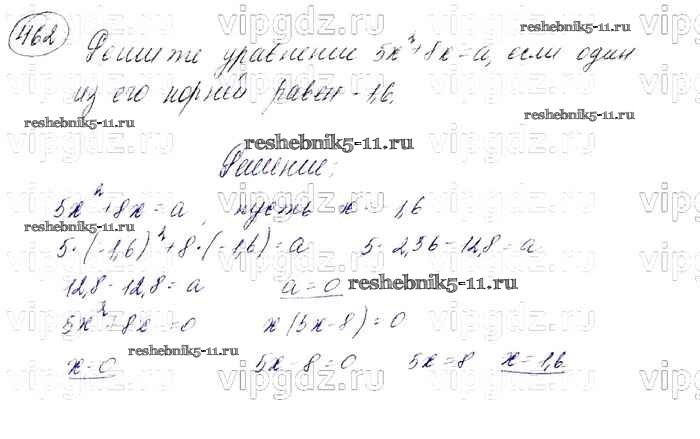 462
Решите уравнение 5x²+8x=a, если один
из его корней равен -1,6.
Решение:
5x²+8x=a, пусть x=-1,6
5·(-1,6)²+8·(-1,6)=a 5·2,56-12,8=a
12,8-12,8=a a=0
5x²-8x=0 x(5x-8)=0
x=0 5x-8=0 5x=8 x=1,6
vipgdz.ru
reshebnik5-11.ru